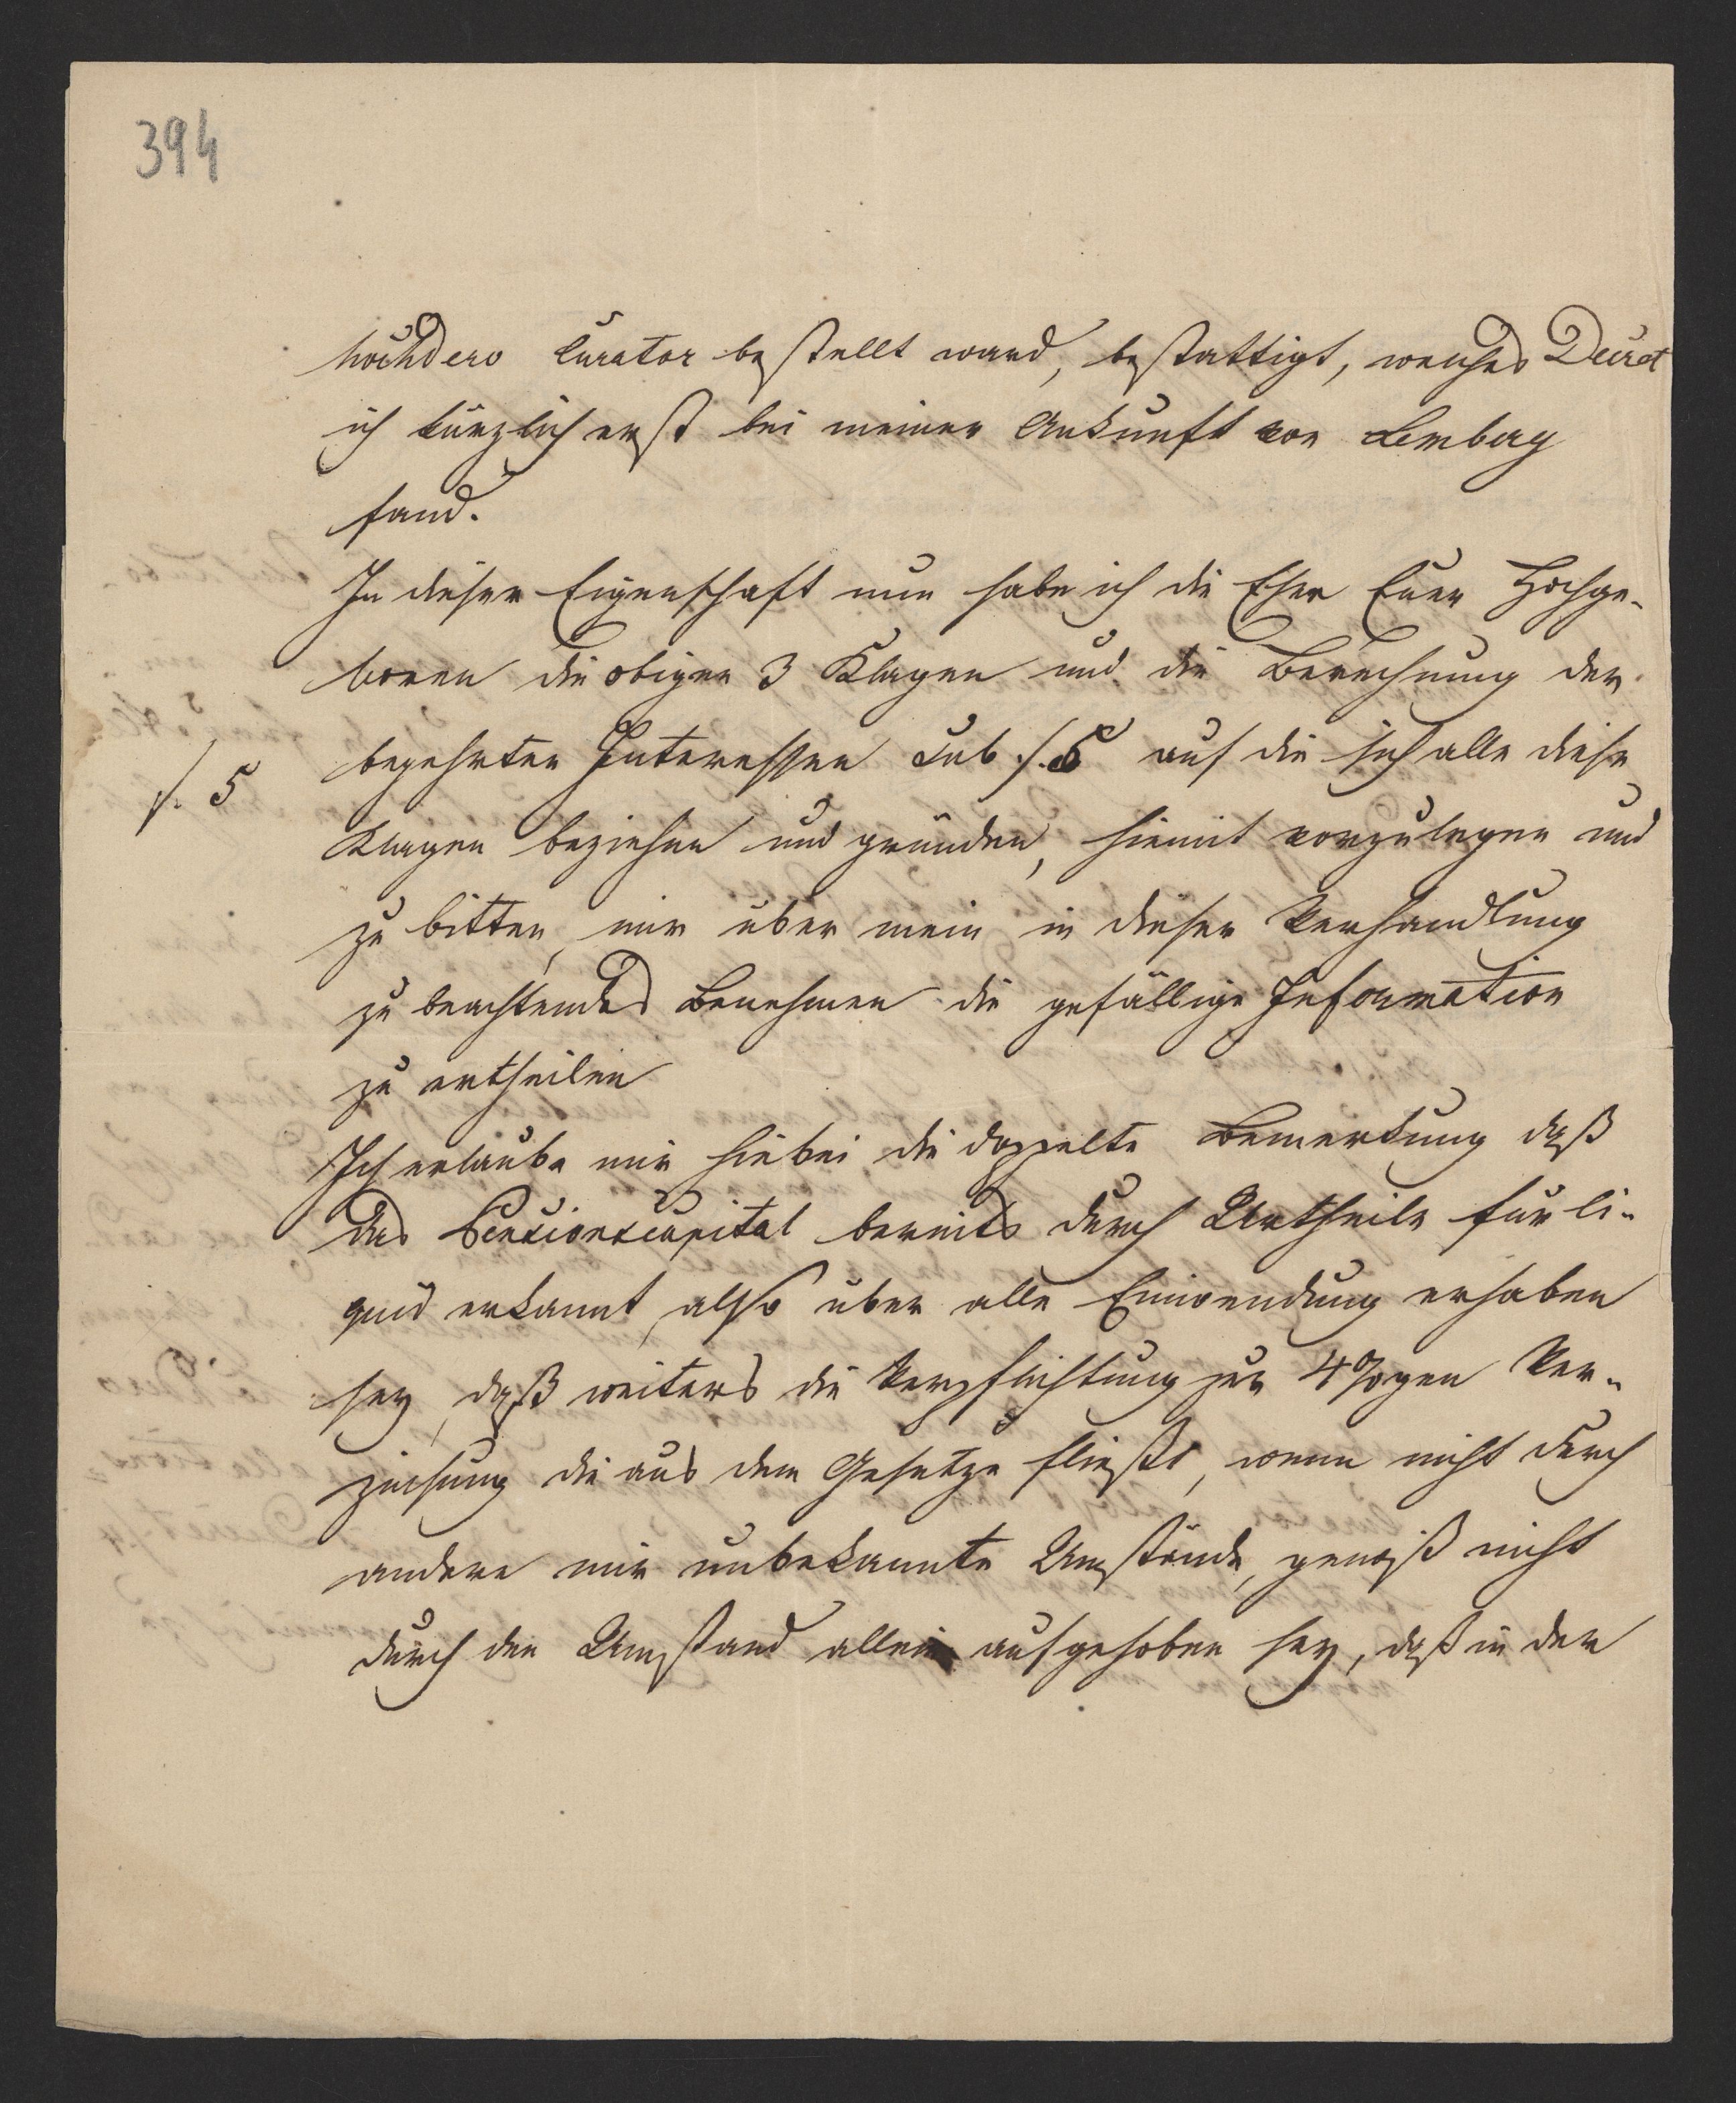 394
höchdero Curator bestellt ward, bestättigt, welches Decret
ich kürzlich erst bei meiner Ankunft von Lemberg
fand.
In dieser Eigenschaft nun habe ich die Ehre Euer Hochge-
boren die obigen 3 Klagen und die Berechnung der
begehrten Interessen sub ./. 5 auf die sich alle diese
./. 5
Klagen beziehen und gründen, hiemit vorzulegen und
zu bitten, mir über mein in dieser Verhandlung
zu beachtendes Benehmen die gefällige Information
zu ertheilen
Ich erlaube mir hiebei die doppelte Bemerkung daß
das Pensionskapital bereits durch Urtheile für li-
quid erkannt, also über alle Einwendung erhaben
sey, daß weiters die Verpflichtung zur 4%gen Ver-
zinsung die aus dem Gesetze fließt, wenn nicht durch
andere mir unbekannte Umstände, gewiß nicht
durch den Umstand allein aufgehoben sey, daß in den